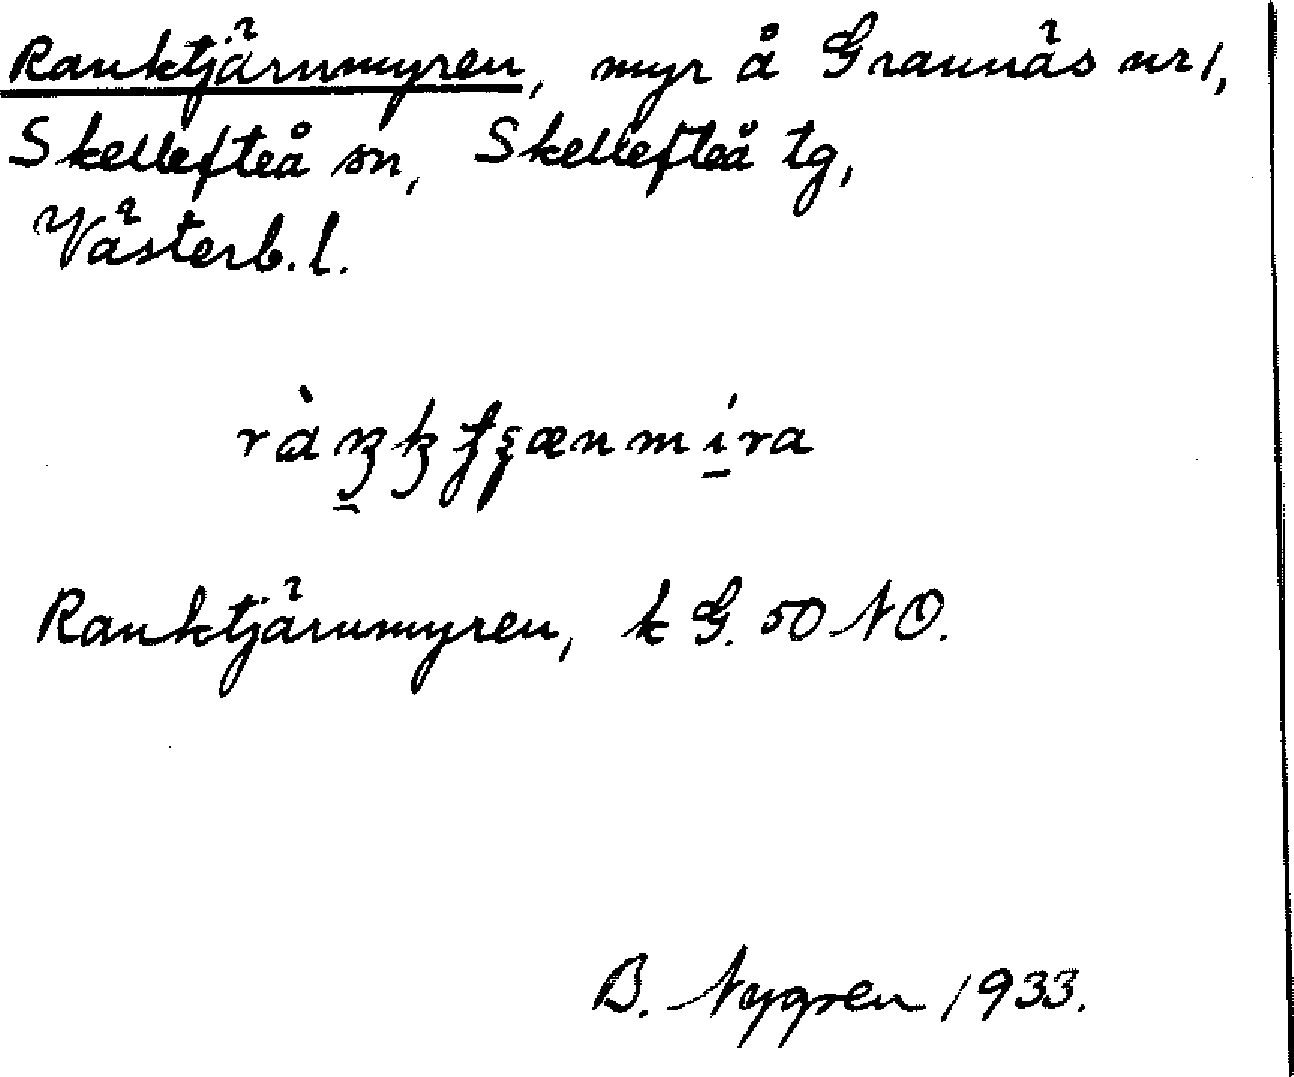 Ranktjärnmyren, myr å Grannäs nr 1,
Skellefteå sn, Skellefteå tg,
Västerb. l.
Ranktjärnmyren, k G. 50 NO.
B. Nygren 1933.